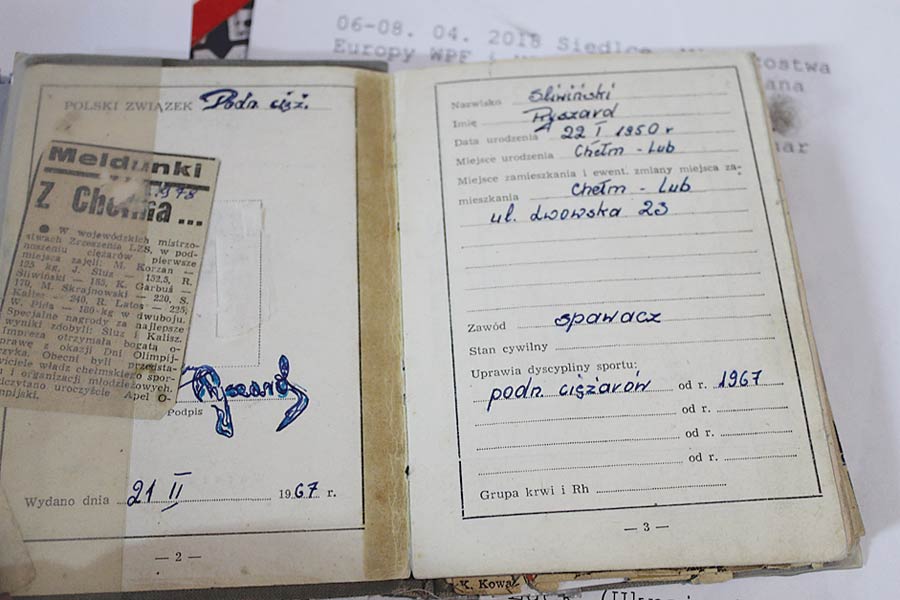 06-08. 04. 2018 Siedlce
Europy WPF
POLSKI ZWIĄZEK Podn. cięż.
Meldunki
Z Chełma...
1978
● W wojewódzkich mistrzo-
stwach Zrzeszenia LZS, w pod-
noszeniu ciężarów pierwsze
miejsca zajęli: M. Korzan —
125 kg, J. Śluz — 152,5, R.
Śliwiński — 185, K. Garbuś —
170, M. Skrajnowski — 220, S.
Kalisz — 240, R. Latos — 225,
W. Pida — 180 kg w dwuboju.
Specjalne nagrody za najlepsze
wyniki zdobyli: Śluz i Kalisz.
Impreza otrzymała bogatą o-
prawę z okazji Dni Olimpij-
czyka. Obecni byli przedsta-
wiciele władz chełmskiego spor-
tu i organizacji młodzieżowych.
Odczytano uroczyście Apel O-
limpijski.
Ryszard
Podpis
Wydano dnia 21 II 1967 r.
— 2 —
Nazwisko Śliwiński
Imię Ryszard
Data urodzenia 22 I 1950 r
Miejsce urodzenia Chełm - Lub
Miejsce zamieszkania i ewent. zmiany miejsca za-
mieszkania Chełm - Lub
ul. Lwowska 23
Zawód spawacz
Stan cywilny
Uprawia dyscypliny sportu:
podn. ciężarów od r. 1967
od r.
od r.
od r.
Grupa krwi i Rh
— 3 —
K. Kowa